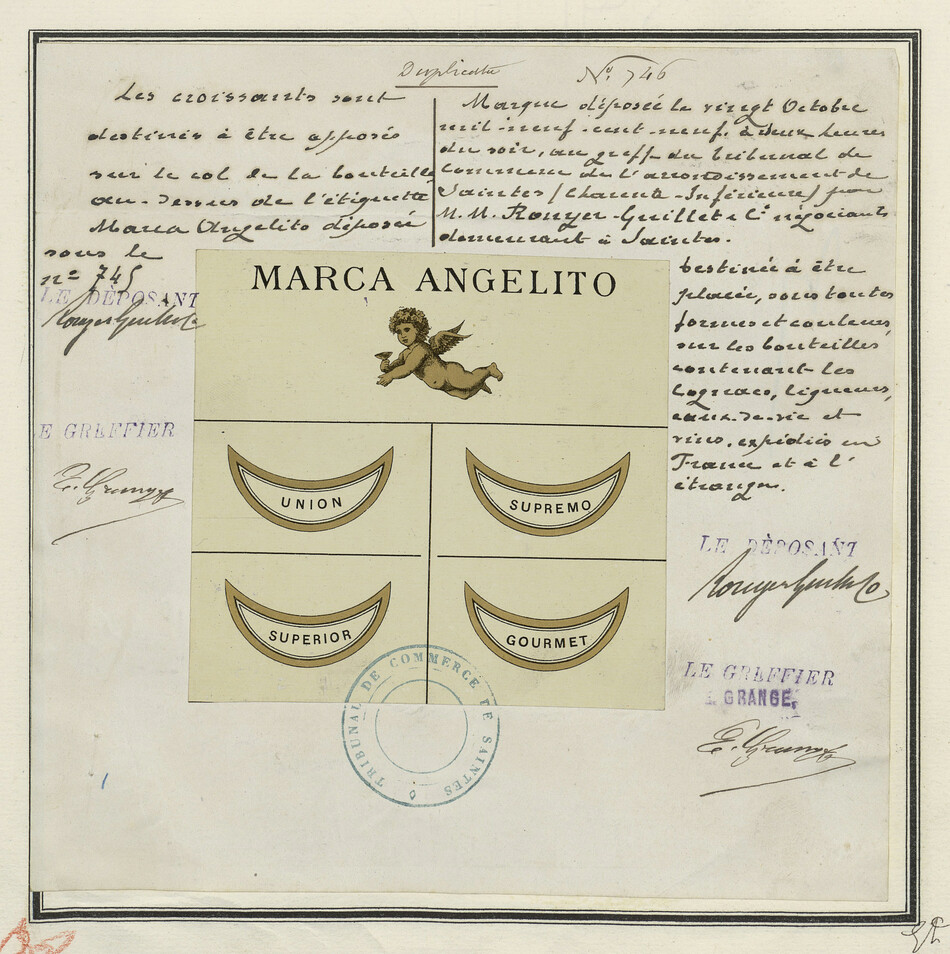 Duplicata
N° 746
Les croissants sont
destinés à être apposés
sur le col de la bouteille
au-dessus de l'étiquette
Marca Angelito déposée
sous le
n° 745
LE DÉPOSANT
Rouyer Guillet & Co
LE GREFFIER
E. Grange
Marque déposée le vingt Octobre
mil-neuf-cent-neuf, à deux heures
du soir, au greffe du Tribunal de
Commerce de l'arrondissement de
Saintes (Charente-Inférieure) par
M.M. Rouyer-Guillet & Cie négociants
demeurant à Saintes.
Destinée à être
placée, sous toutes
formes et couleurs,
sur les bouteilles
contenant les
Cognacs, liqueurs,
eaux-de-vie et
vins, expédiés en
France et à l'
étranger.
LE DÉPOSANT
Rouyer Guillet & Co
LE GREFFIER
E. GRANGE,
E. Grange
MARCA ANGELITO
UNION
SUPREMO
SUPERIOR
GOURMET
TRIBUNAL DE COMMERCE DE SAINTES